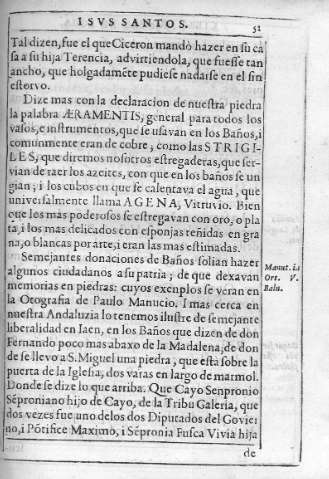 I SVS SANTOS.
51
Tal dizen, fue el que Ciceron mandò hazer en su ca
sa a su hija Terencia, advirtiendola, que fuesse tan
ancho, que holgadamẽte pudiese nadarse en el sin
estorvo.
Dize mas con la declaracion de nuestra piedra
la palabra ÆRAMENTIS, general para todos los
vasos, e instrumentos, que se usavan en los Baños, i
comunmente eran de cobre, como las STRIGI-
LES, que diremos nosotros estregaderas, que ser-
vian de raer los azeites, con que en los baños se un
gian; i los cubos en que se calentava el agua, que
universalmente llama AGENA, Vitruvio. Bien
que los mas poderosos se estregavan con oro, o pla
ta, i los mas delicados con esponjas teñidas en gra
na, o blancas por arte, i eran las mas estimadas.
Semejantes donaciones de Baños solian hazer
algunos ciudadanos a su patria; de que dexavan
memorias en piedras: cuyos exenplos se veran en
la Otografia de Paulo Manucio. I mas cerca en
nuestra Andaluzia lo tenemos ilustre de semejante
liberalidad en Iaen, en los Baños que dizen de don
Fernando poco mas abaxo de la Madalena, de don
de se llevo a S. Miguel una piedra, que està sobre la
puerta de la Iglesia, dos varas en largo de marmol.
Donde se dize lo que arriba. Que Cayo Senpronio
Sẽproniano hijo de Cayo, de la Tribu Galeria, que
dos vezes fue uno delos dos Diputados del Govier
no, i Põtifice Maximo, i Sẽpronia Fusca Vivia hija
de
Manut. in
Ort. V.
Baln.